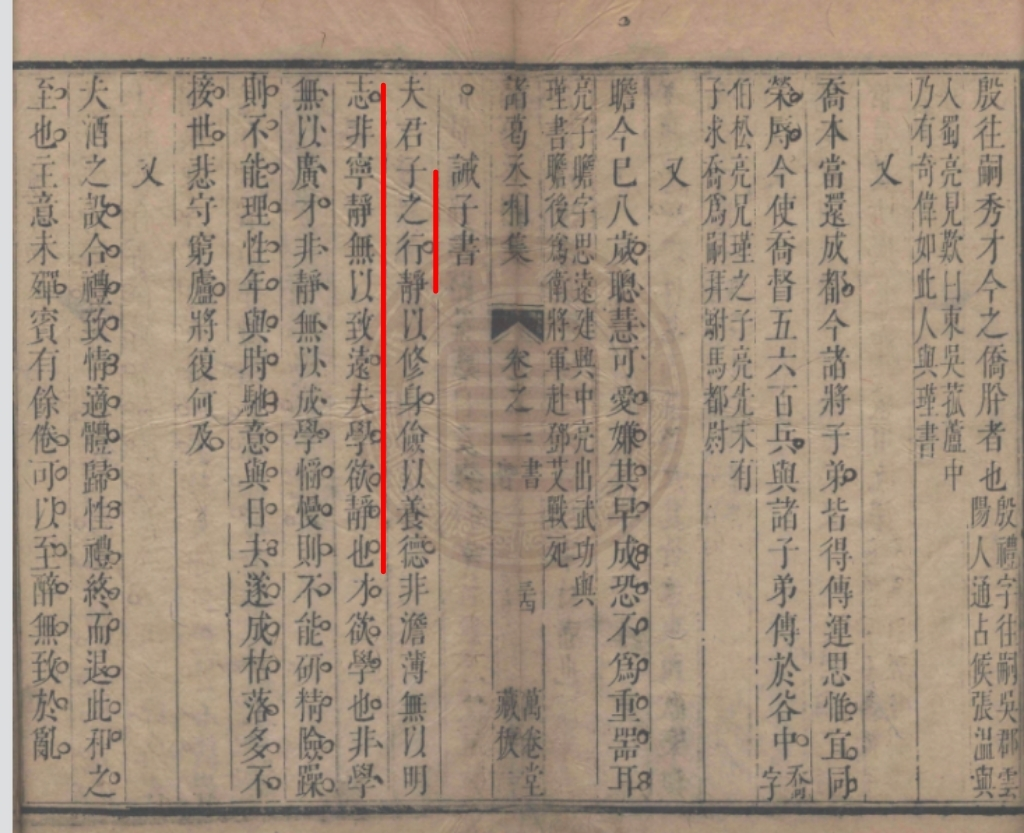 殷往嗣秀才今之僑肸者也
殷禮字往嗣吳郡雲
陽人通占候張溫與
入蜀亮見歎曰東吳菰蘆中
乃有奇偉如此人與瑾書
又
喬本當還成都今諸將子弟皆得傳運思惟宜同
榮辱今使喬督五六百兵與諸子弟傳於谷中
喬字
伯松亮兄瑾之子亮先未有
子求喬爲嗣拜駙馬都尉
又
瞻今已八歲聰慧可愛嫌其早成恐不爲重器耳
亮子瞻字思遠建興中亮出武功與
瑾書瞻後爲衛將軍赴鄧艾戰死
諸葛丞相集
卷之一
書
萬卷堂
藏板
誡子書
夫君子之行靜以修身儉以養德非澹薄無以明
志非寧靜無以致遠夫學欲靜也才欲學也非學
無以廣才非靜無以成學慆慢則不能研精險躁
則不能理性年與時馳意與日去遂成枯落多不
接世悲守窮廬將復何及
又
夫酒之設合禮致情適體歸性禮終而退此和之
至也主意未殫賓有餘倦可以至醉無致於亂